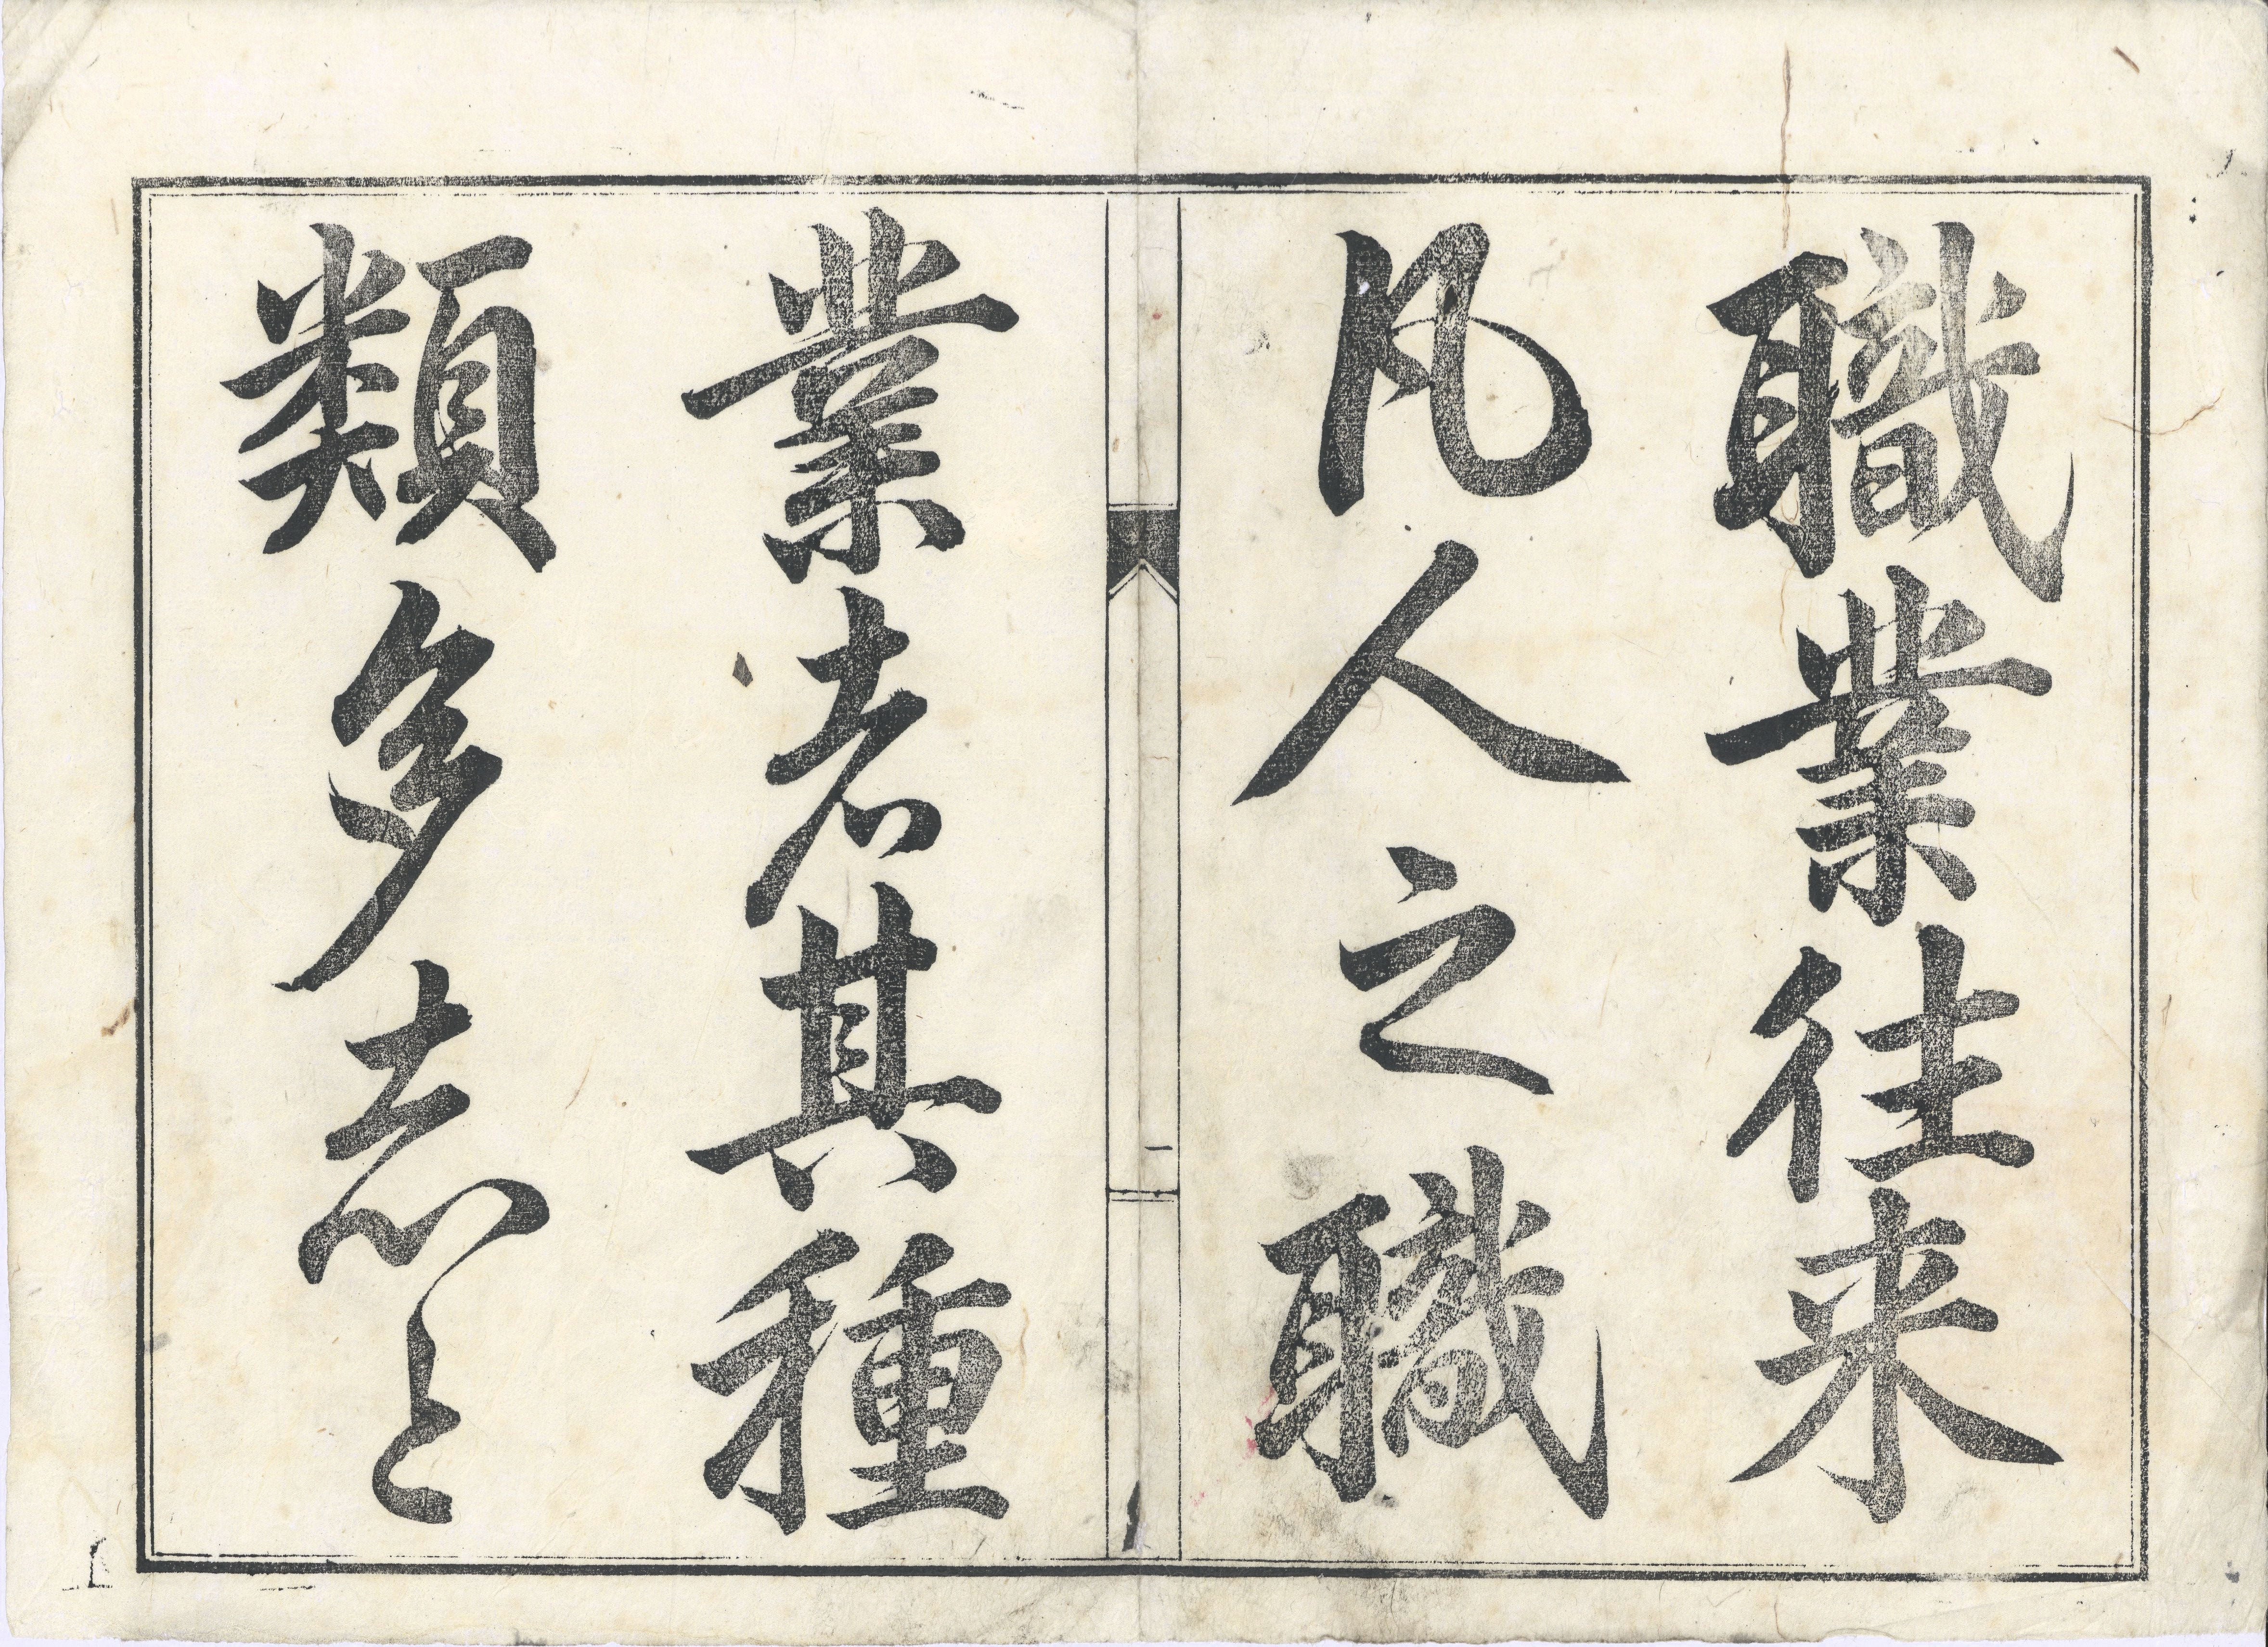 職業往来
凡人之職
一
業者其種
類多志と